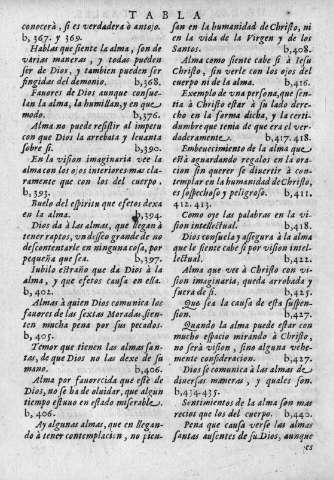 TABLA
conocerà, si es verdadera ò antojo.
b, 367. y 369.
Hablas que siente la alma, son de
varias maneras, y todas pueden
ser de Dios, y tambien pueden ser
fingidas del demonio. b,368.
Fauores de Dios aunque consue-
lan la alma, la humillan, y en que
modo. b,376.
Alma no puede resistir al impetu
con que Dios la arrebata y leuanta
sobre si. b,390.
En la vision imaginaria vee la
alma con los ojos interiores mas cla-
ramente que con los del cuerpo.
b, 393.
Buelo del espiritu que efetos dexa
en la alma. b,394.
Dios dà à las almas, que llegan à
tener raptos, vn disseo grande de no
descontentarle en ninguna cosa, por
pequeña que sea. b,397.
Iubilo estraño que da Dios à la
alma, y que efetos causa en ella.
b, 402.
Almas à quien Dios comunica los
fauores de las sextas Moradas, sien-
ten mucha pena por sus pecados.
b, 405.
Temor que tienen las almas san-
tas, de que Dios no las dexe de su
mano. b,406.
Alma por fauorecida que estè de
Dios, no se ha de oluidar, que algun
tiempo estuuo en estado miserable.
b, 406.
Ay algunas almas, que en llegan-
do à tener contemplacion, no pien-
san en la humanidad de Christo, ni
en la vida de la Virgen y de los
Santos. b,408.
Alma como siente cabe si à Iesu
Christo, sin verle con los ojos del
cuerpo ni de la alma. b,416.
Exemplo de vna persona, que sen-
tia à Christo estar à su lado dere-
cho en la forma dicha, y la certi-
dumbre que tenia de que era el ver-
daderamente. b,417.418.
Embeuecimiento de la alma que
està aguardando regalos en la ora-
cion sin querer se diuertir à con-
templar en la humanidad de Christo,
es sospechoso y peligroso. b,411.
412. 413.
Como oye las palabras en la vi-
sion intellectual. b,418.
Dios consuela y assegura à la alma
que le siente cabe si por vision intel-
lectual. b,422.
Alma que vee à Christo con vi-
sion imaginaria, queda arrobada y
fuera de si. b,425.
Que sea la causa de esta suspen-
sion. b,427.
Quando la alma puede estar con
mucho espacio mirando à Christo,
no serà vision, sino alguna vehe-
mente consideracion. b,427.
Dios se comunica à las almas de
diuersas maneras, y quales son.
b,434-435.
Sentimientos de la alma son mas
recios que los del cuerpo. b,440.
Pena que causa verse las almas
santas ausentes de su Dios, aunque
es